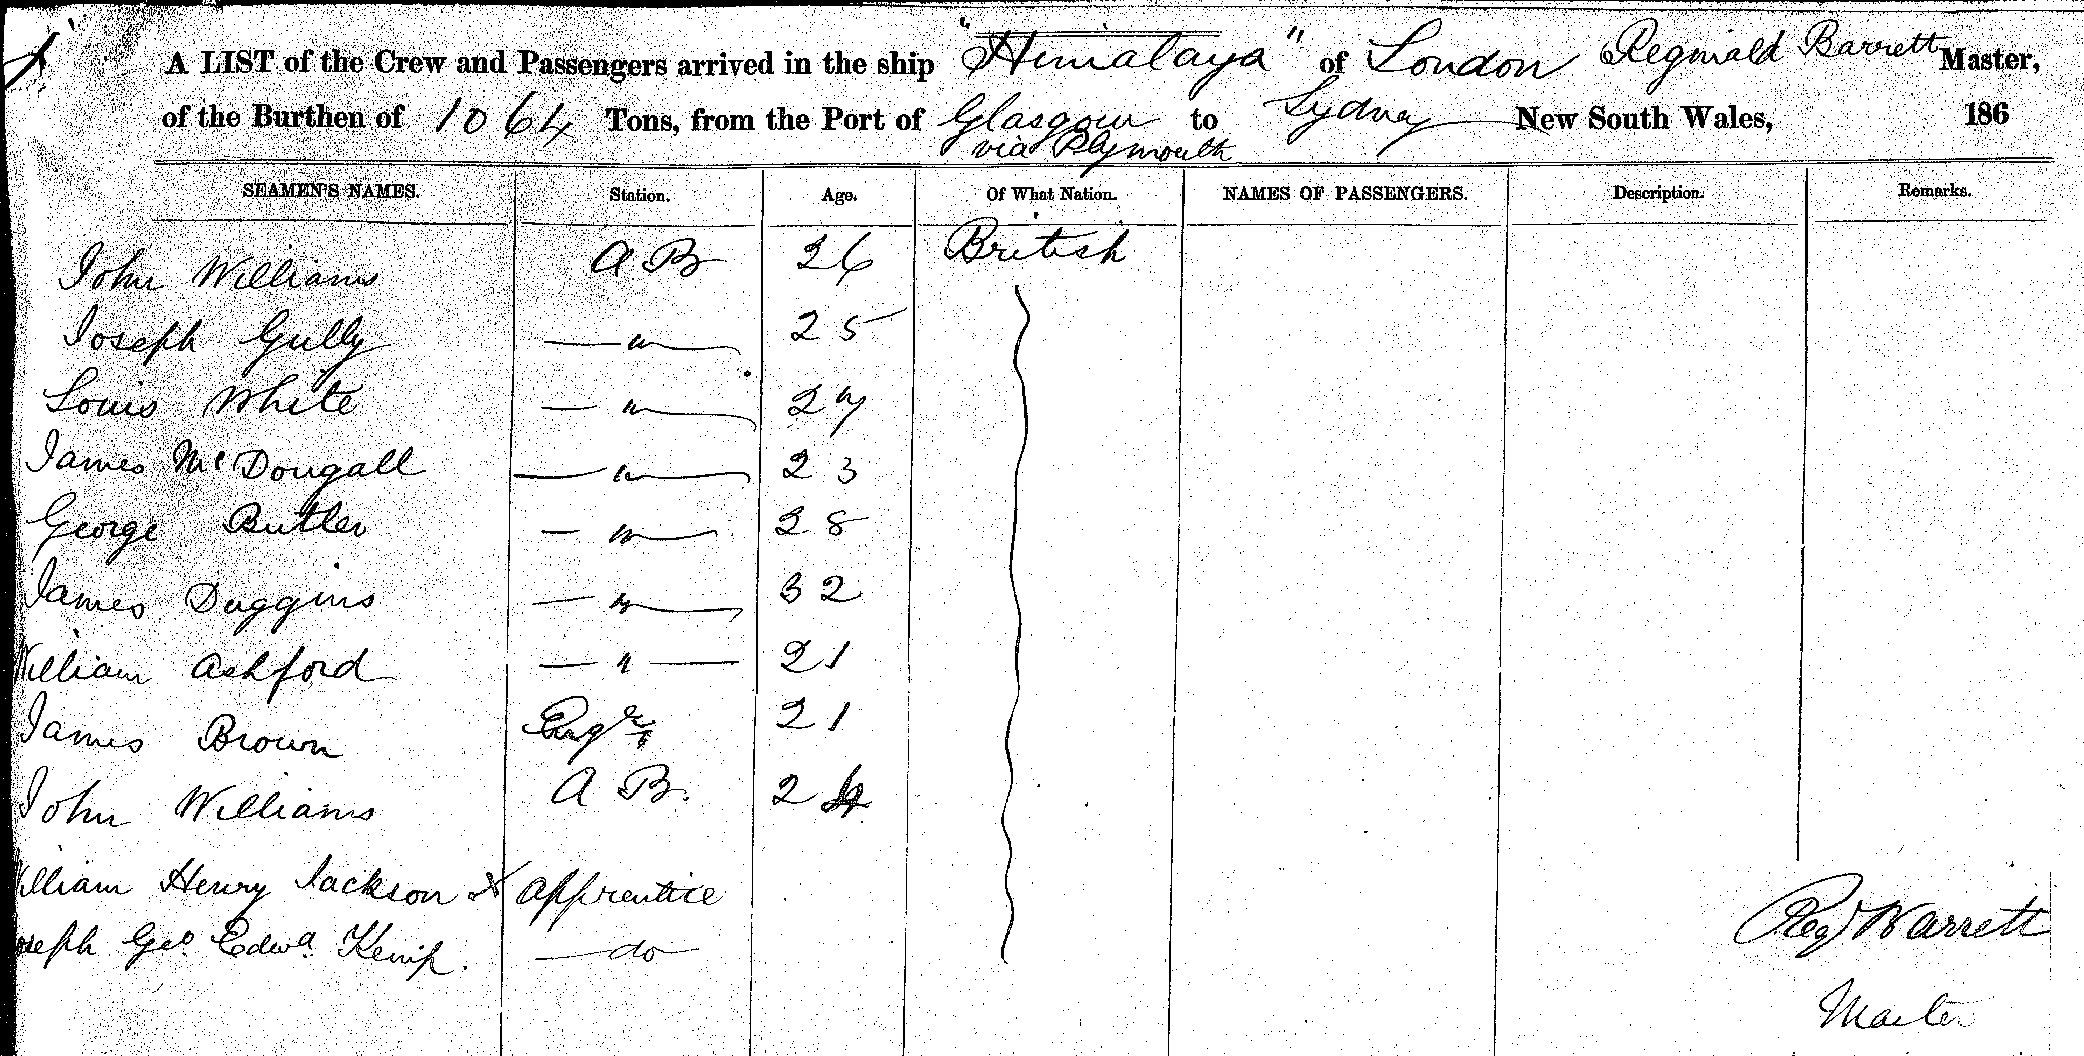 A LIST of the Crew and Passengers arrived in the ship "Himalaya" of London Reginald Barrett Master,
of the Burthen of 1064 Tons, from the Port of Glasgow via Plymouth to Sydney New South Wales, 186
SEAMEN'S NAMES. Station. Age. Of What Nation. NAMES OF PASSENGERS. Description. Remarks.
John Williams A B 26 British
Joseph Gully — " — 25
Louis White — " — 27
James McDougall — " — 23
George Butler — " — 28
James Duggins — " — 32
William Ashford — " — 21
James Brown 21
John Williams A B. 24
William Henry Jackson X Apprentice
Joseph Geo. Edwd. Kemp. — do —
Regd Barrett
Master